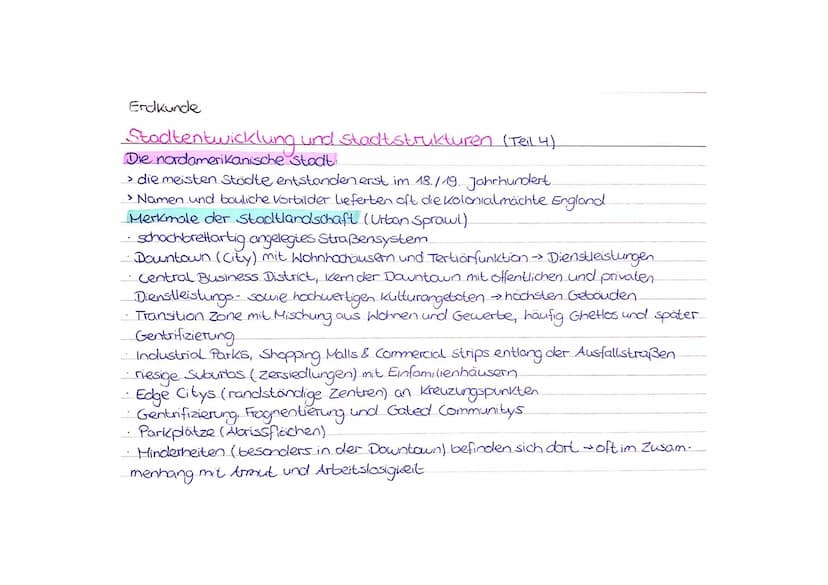 Erdkunde
Stadtentwicklung und Stadtstrukturen (Teil 4)
Die nordamerikanische Stadt
> die meisten Städte entstanden erst im 18./19. Jahrhundert
> Namen und bauliche Vorbilder lieferten oft die Kolonialmächte England
Merkmale der Stadtlandschaft (Urban Sprawl)
· schachbrettartig angelegtes Straßensystem
· Downtown (City) mit Wohnhochhäusern und Tertiärfunktion → Dienstleistungen
· Central Business District, Kern der Downtown mit öffentlichen und privaten
Dienstleistungs- sowie hochwertigen Kulturangeboten → höchsten Gebäuden
· Transition Zone mit Mischung aus Wohnen und Gewerbe, häufig Ghettos und später
Gentrifizierung
· Industrial Parks, Shopping Malls & Commercial strips entlang der Ausfallstraßen
· riesige Suburbs (Zersiedlungen) mit Einfamilienhäusern
· Edge Citys (randständige Zentren) an Kreuzungspunkten
· Gentrifizierung, Fragmentierung und Gated Communitys
· Parkplätze (Abrissflächen)
· Minderheiten (besonders in der Downtown) befinden sich dort → oft im Zusam-
menhang mit Armut und Arbeitslosigkeit